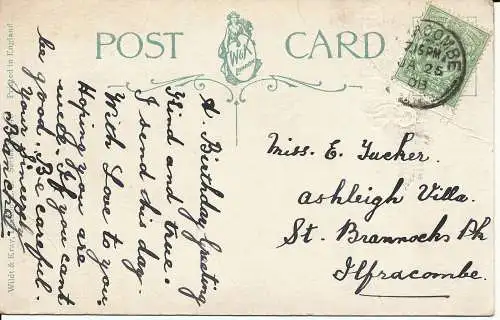 POST CARD
W&K
London
Printed in England
Wildt & Kray,
COOMBE
7.15PM
JA 25
08
A. Birthday Greeting
Kind and true.
I send this day.
With Love to you.
Hoping you are
well. If you cant
be good. Be careful.
Your Sincere
Blanche.
Miss. E. Tucker.
Ashleigh Villa.
St. Brannocks Pk
Ilfracombe.